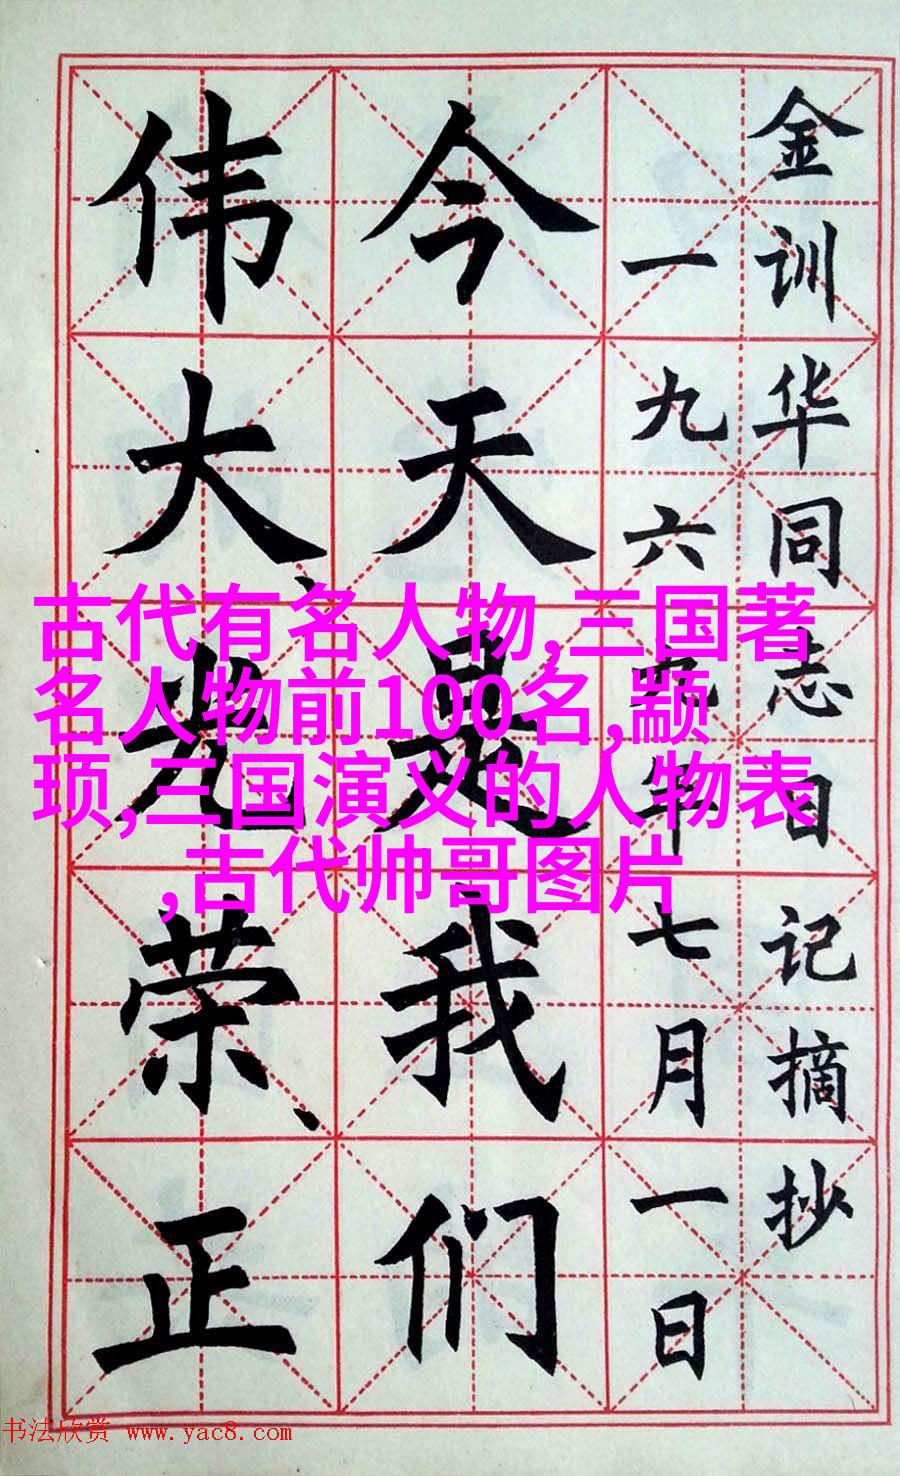 金训华同志日记摘抄
一九六九年七月一日
今天是我们
伟大、光荣、正
古代有名人物,三国著
名人物前100名,颛
顼,三国演义的人物表
,古代帅哥图片
书法欣赏 www.yac8.com